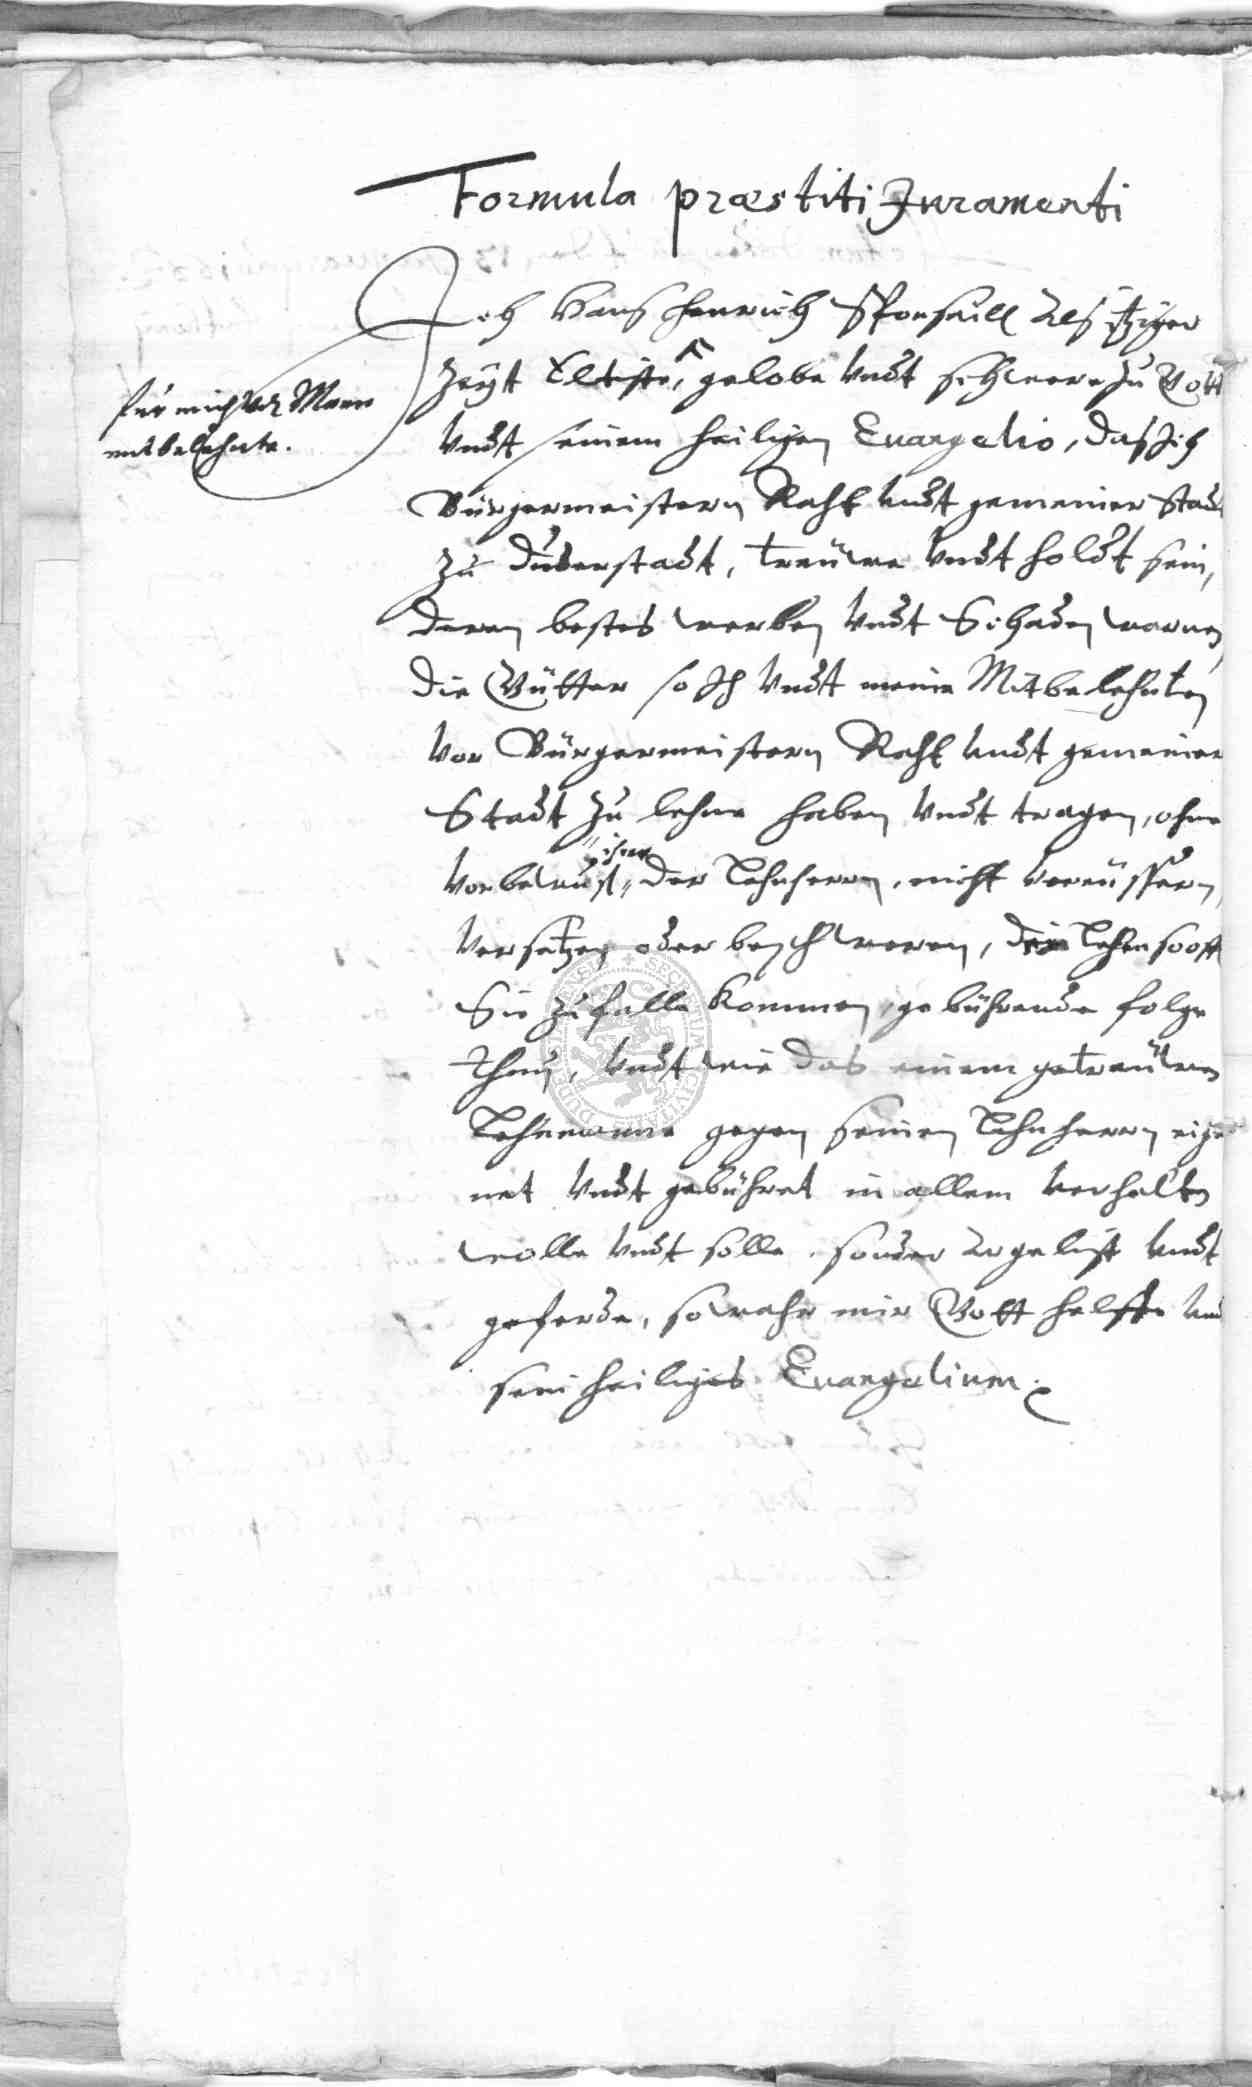 Formula præstiti Juramenti
Ich Hans Henrich Sponsaill Alß itziger
Zeyt Eltister, gelobe undt schweere zu Gott
für mich und Meine
mitbelehnte.
undt seinem heiligen Evangelio, daß Ich
Bürgermeistern Raht undt gemeiner Stadt
zu Duderstadt, treüwe undt holdt sein,
deren bestes werben undt Schaden warnen,
die Gütter so Ich undt meine Mitbelehnten
von Bürgermeistern Raht undt gemeiner
Stadt zu lehne haben undt tragen, ohne
vorbewust ihrer der Lehnherren, nicht vereüssern,
versetzen oder beschweren, den Lehen so oft
Sie zu falle kommen, gebührende folge
thun, undt wie das einem getreüwen
Lehnmanne gegen seinen Lehnherren eige
net undt gebühret in allem verhalten
wolle undt solle, sonder Argelist undt
geferde, so wahr mir Gott helffe und
sein heiliges Evangelium.
SECRETUM CIVITATIS DUDERSTADENSIS